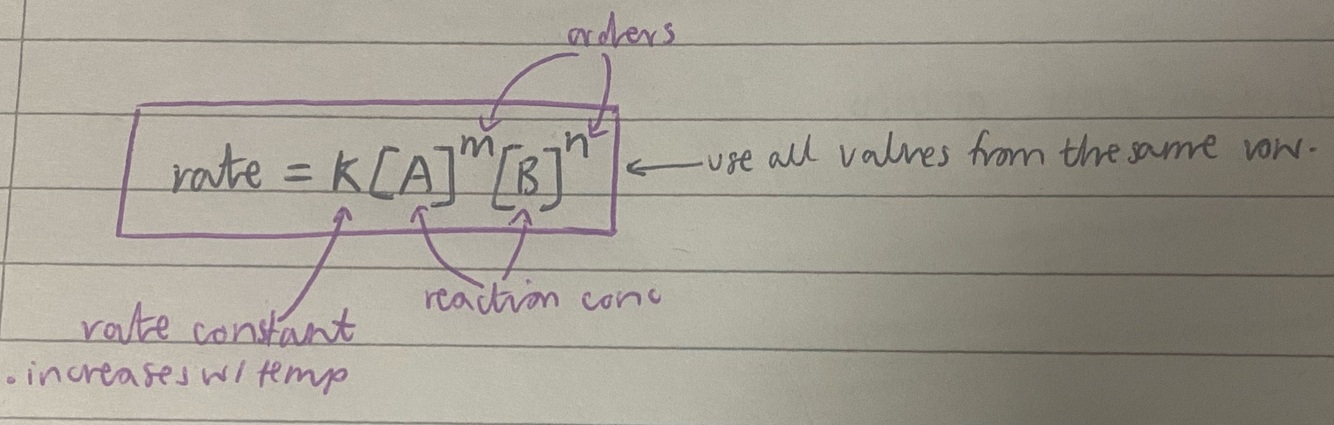 orders
rate = K[A]^m[B]^n ← use all values from the same row.
reaction conc
rate constant
. increases w/ temp